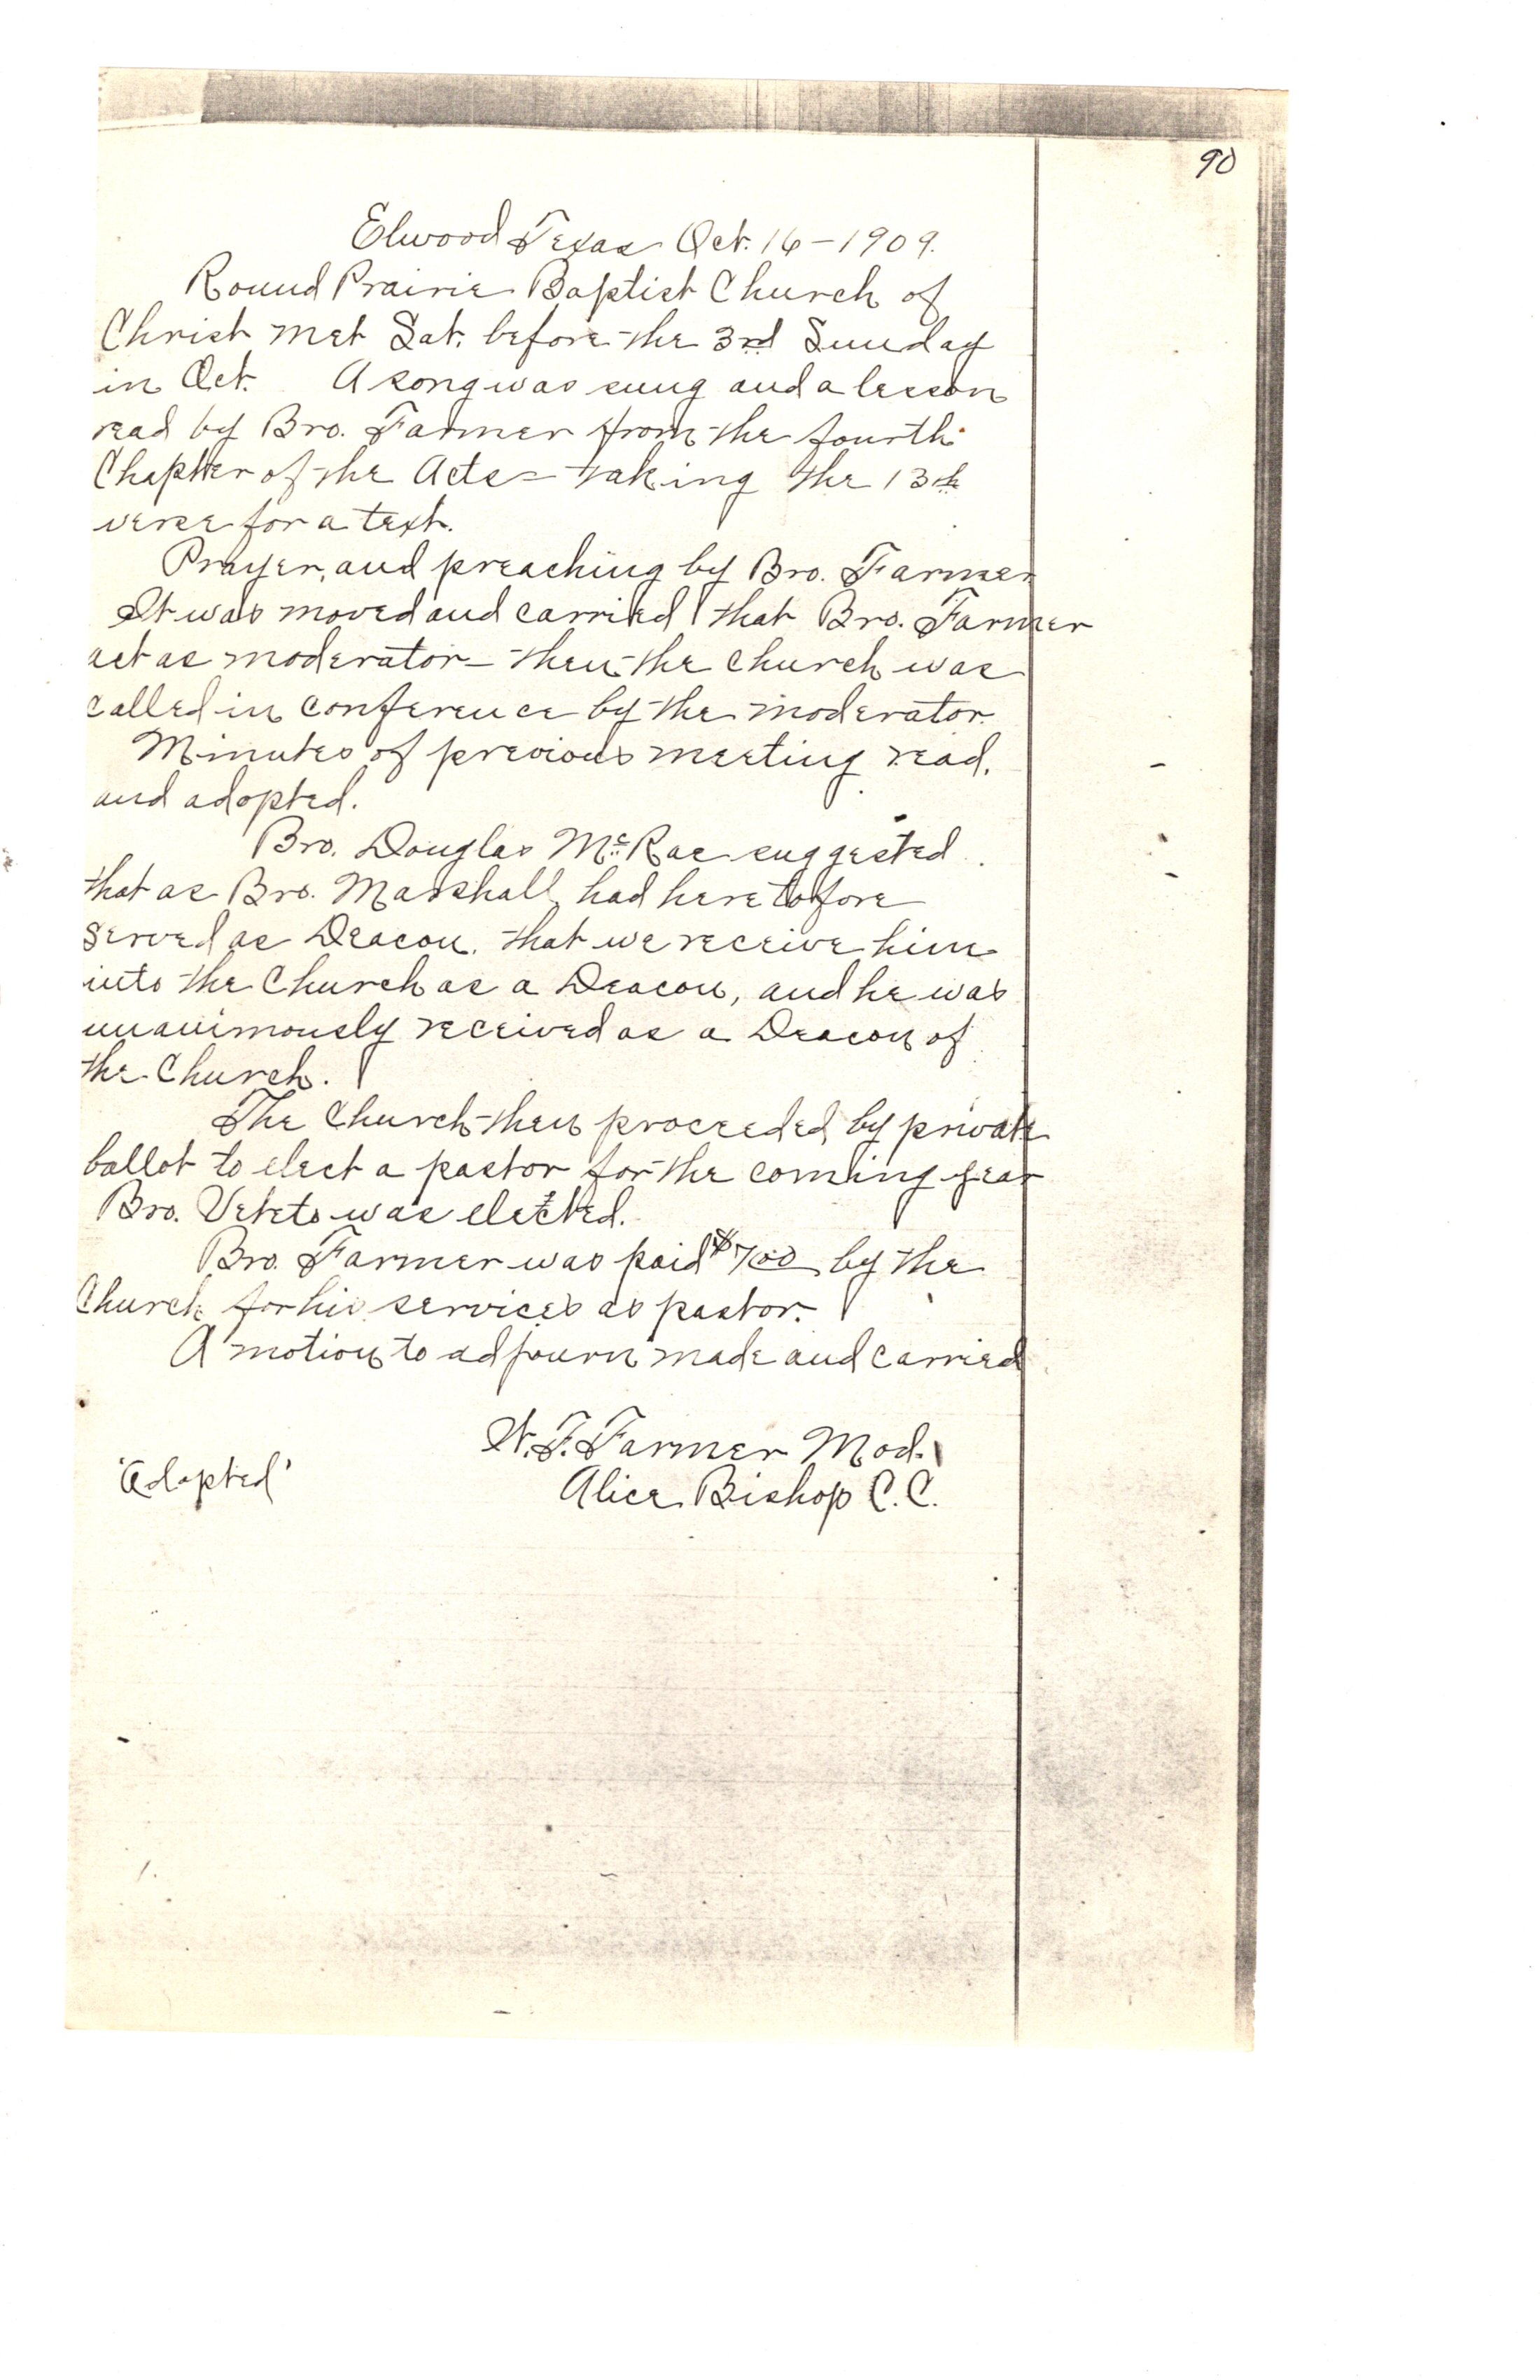 90
Elwood Texas Oct. 16 - 1909.
Round Prairie Baptist Church of
Christ met Sat. before the 3rd Sunday
in Oct. A song was sung and a lesson
read by Bro. Farmer from the fourth
Chapter of the Acts - taking the 13th
verse for a text.
Prayer, and preaching by Bro. Farmer
It was moved and carried that Bro. Farmer
act as moderator - then the church was
called in conference by the moderator.
Minutes of previous meeting read,
and adopted.
Bro. Douglas McRae suggested
that as Bro. Marshall had heretofore
served as Deacon, that we receive him
into the Church as a Deacon, and he was
unanimously received as a Deacon of
the Church.
The Church then proceeded by private
ballot to elect a pastor for the coming year
Bro. Veteto was elected.
Bro. Farmer was paid $7.00 by the
Church for his services as pastor.
A motion to adjourn made and carried
W. F. Farmer Mod.
'Adopted' Alice Bishop C.C.